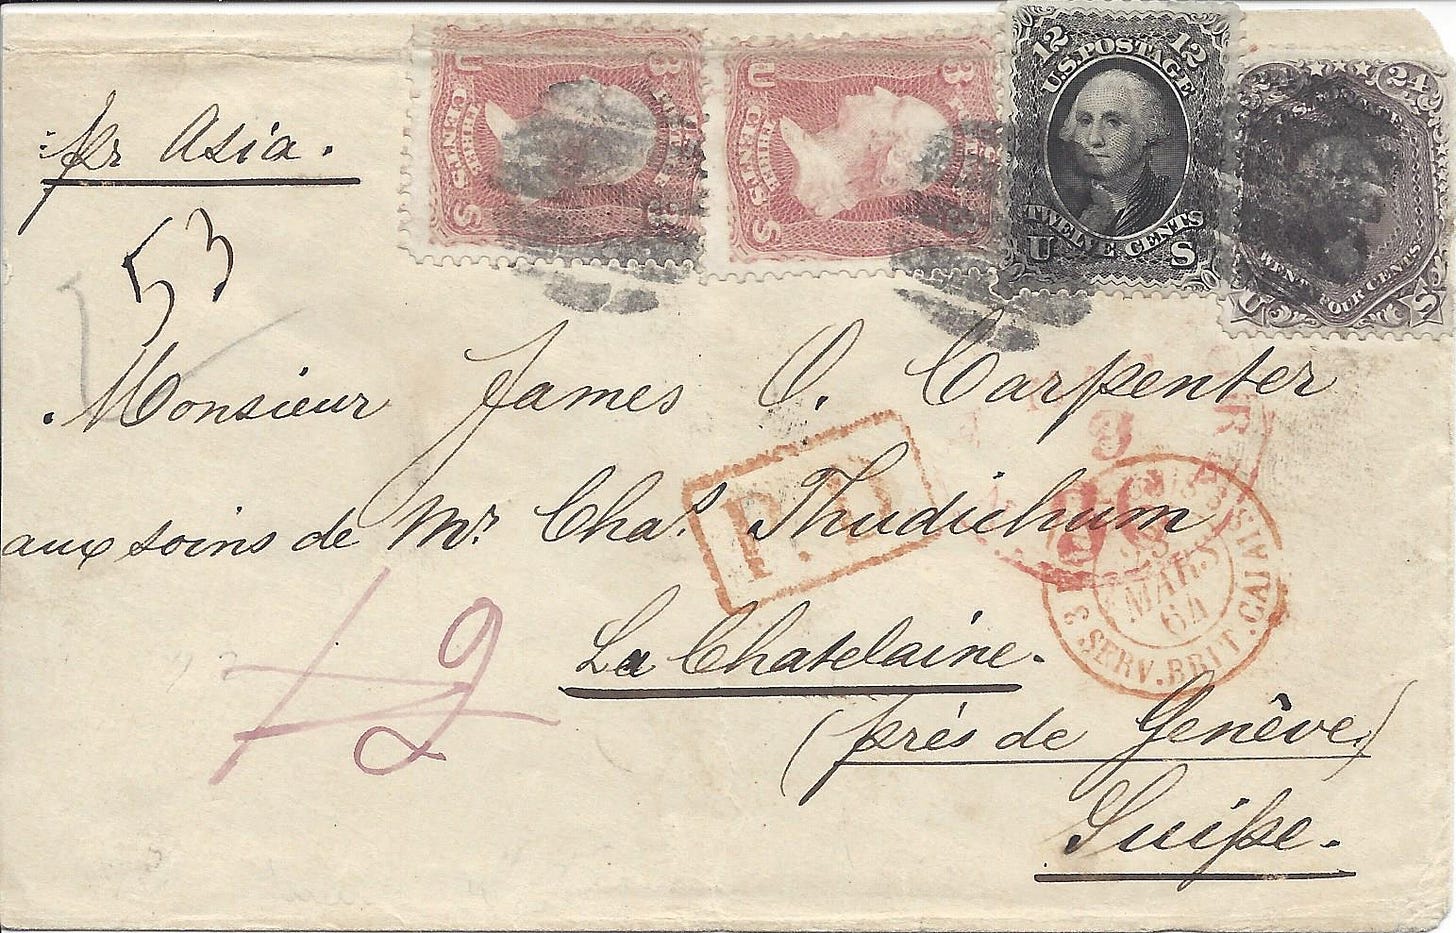 U 3
THREE CENTS
S
U 3
THREE CENTS
S
12 12
U.S. POSTAGE
TWELVE CENTS
U S
24
TWENTY FOUR CENTS
U S
pr Asia.
53
Monsieur James O. Carpenter
aux soins de Mr. Chas. Thudichum
P.D.
9
36
3 MARS 64
3 SERV. BRIT. CALAIS 3
La Chatelaine.
(près de Genève)
Suisse.